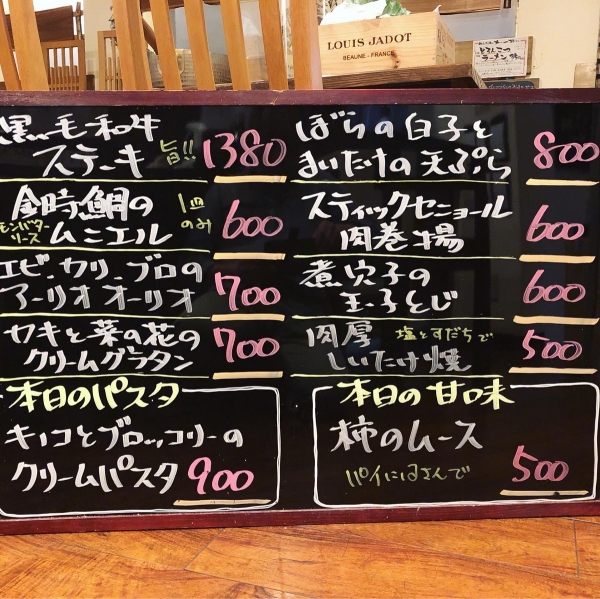 LOUIS JADOT
BEAUNE - FRANCE
とんこつ
ラーメン
黒毛和牛
ステーキ 旨!! 1380
金時鯛の 1皿
レモンバター ソース ムニエル のみ 600
エビ.カリ.ブロの
アーリオオーリオ 700
カキと菜の花の
クリームグラタン 700
本日のパスタ
キノコとブロッコリーの
クリームパスタ 900
ぼらの白子と
まいたけの天ぷら 800
スティックセニョール
肉巻揚 600
煮穴子の
玉子とじ 600
肉厚 塩とすだちで
しいたけ焼 500
本日の甘口味
柿のムース
パイにはさんで 500